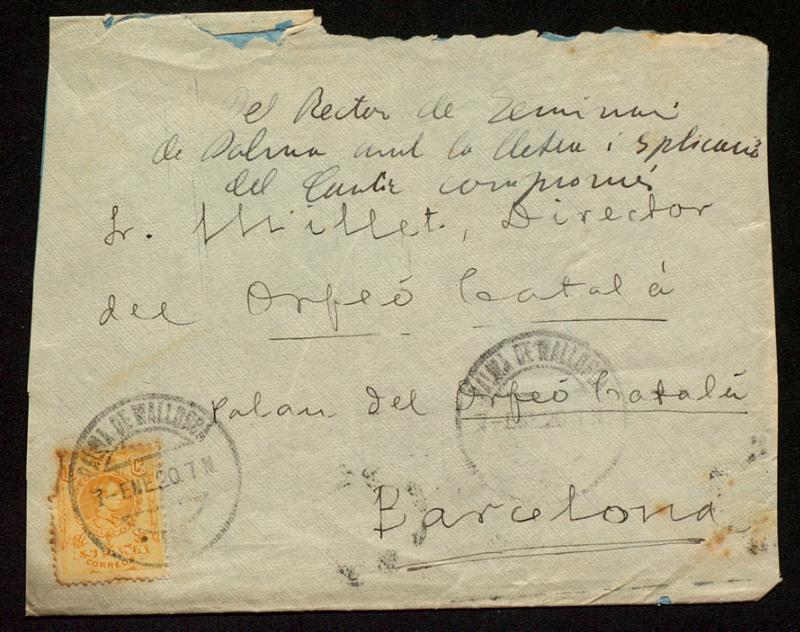 Del Rector de Seminari
de Palma amb la lletra i splicació
del Cantic compromés
Sr. Millet, Director
del Orfeó Catalá
Palau del Orfeó Catalá
Barcelona
PALMA DE MALLORCA
7-ENE20.7N
PALMA DE MALLORCA
CORREOS